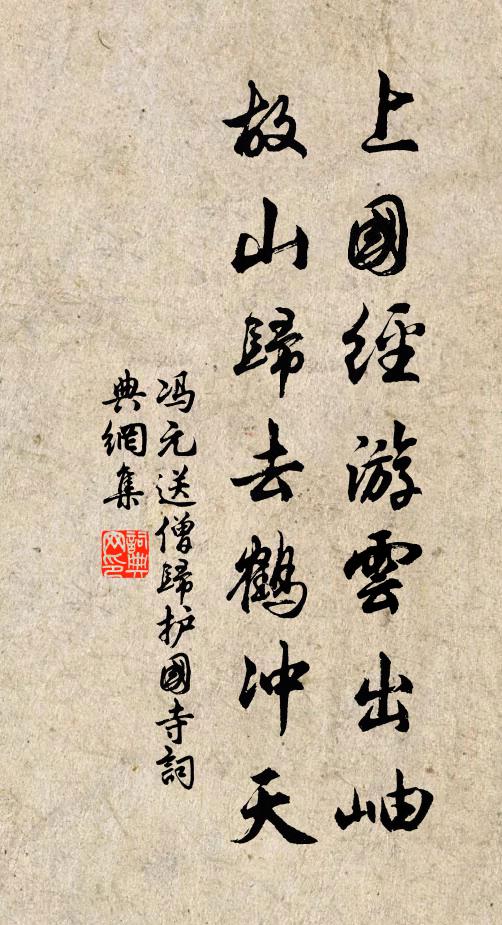 上國經游雲出岫
故山歸去鶴冲天
冯元送僧歸护國寺詞
典網集
詞典网印